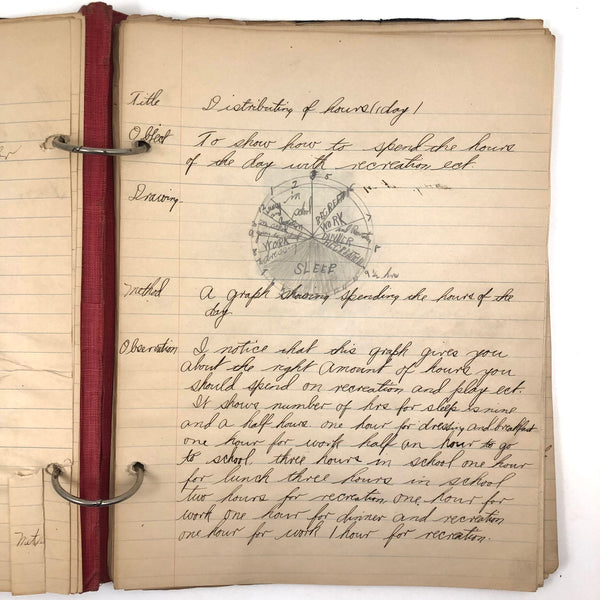 Title Distributing of hours (1 day)
Object To show how to spend the hours
of the day with recreation ect.
Drawing
2 in
school
RECREATION
WORK
DINNER
RECREATION
WORK
dress
SLEEP
9 ½ hrs
Method A graph showing spending the hours of the
day
Observation I notice that this graph gives you
about the right amount of hours you
should spend on recreation and play ect.
It shows number of hrs for sleep is nine
and a half hours one hour for dressing and breakfast
one hour for work half an hour to go
to school, three hours in school one hour
for lunch three hours in school
two hours for recreation one hour for
work one hour for dinner and recreation
one hour for work 1 hour for recration.
Met.